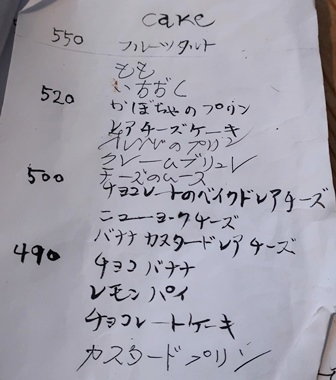 cake
550 フルーツタルト
もも
いちぢく
520 かぼちゃのプリン
レアチーズケーキ
オレンジのプリン
クレームブリュレ
500 チーズのムース
チョコレートのベイクドレアチーズ
ニューヨークチーズ
490 バナナカスタードレアチーズ
チョコバナナ
レモンパイ
チョコレートケーキ
カスタードプリン